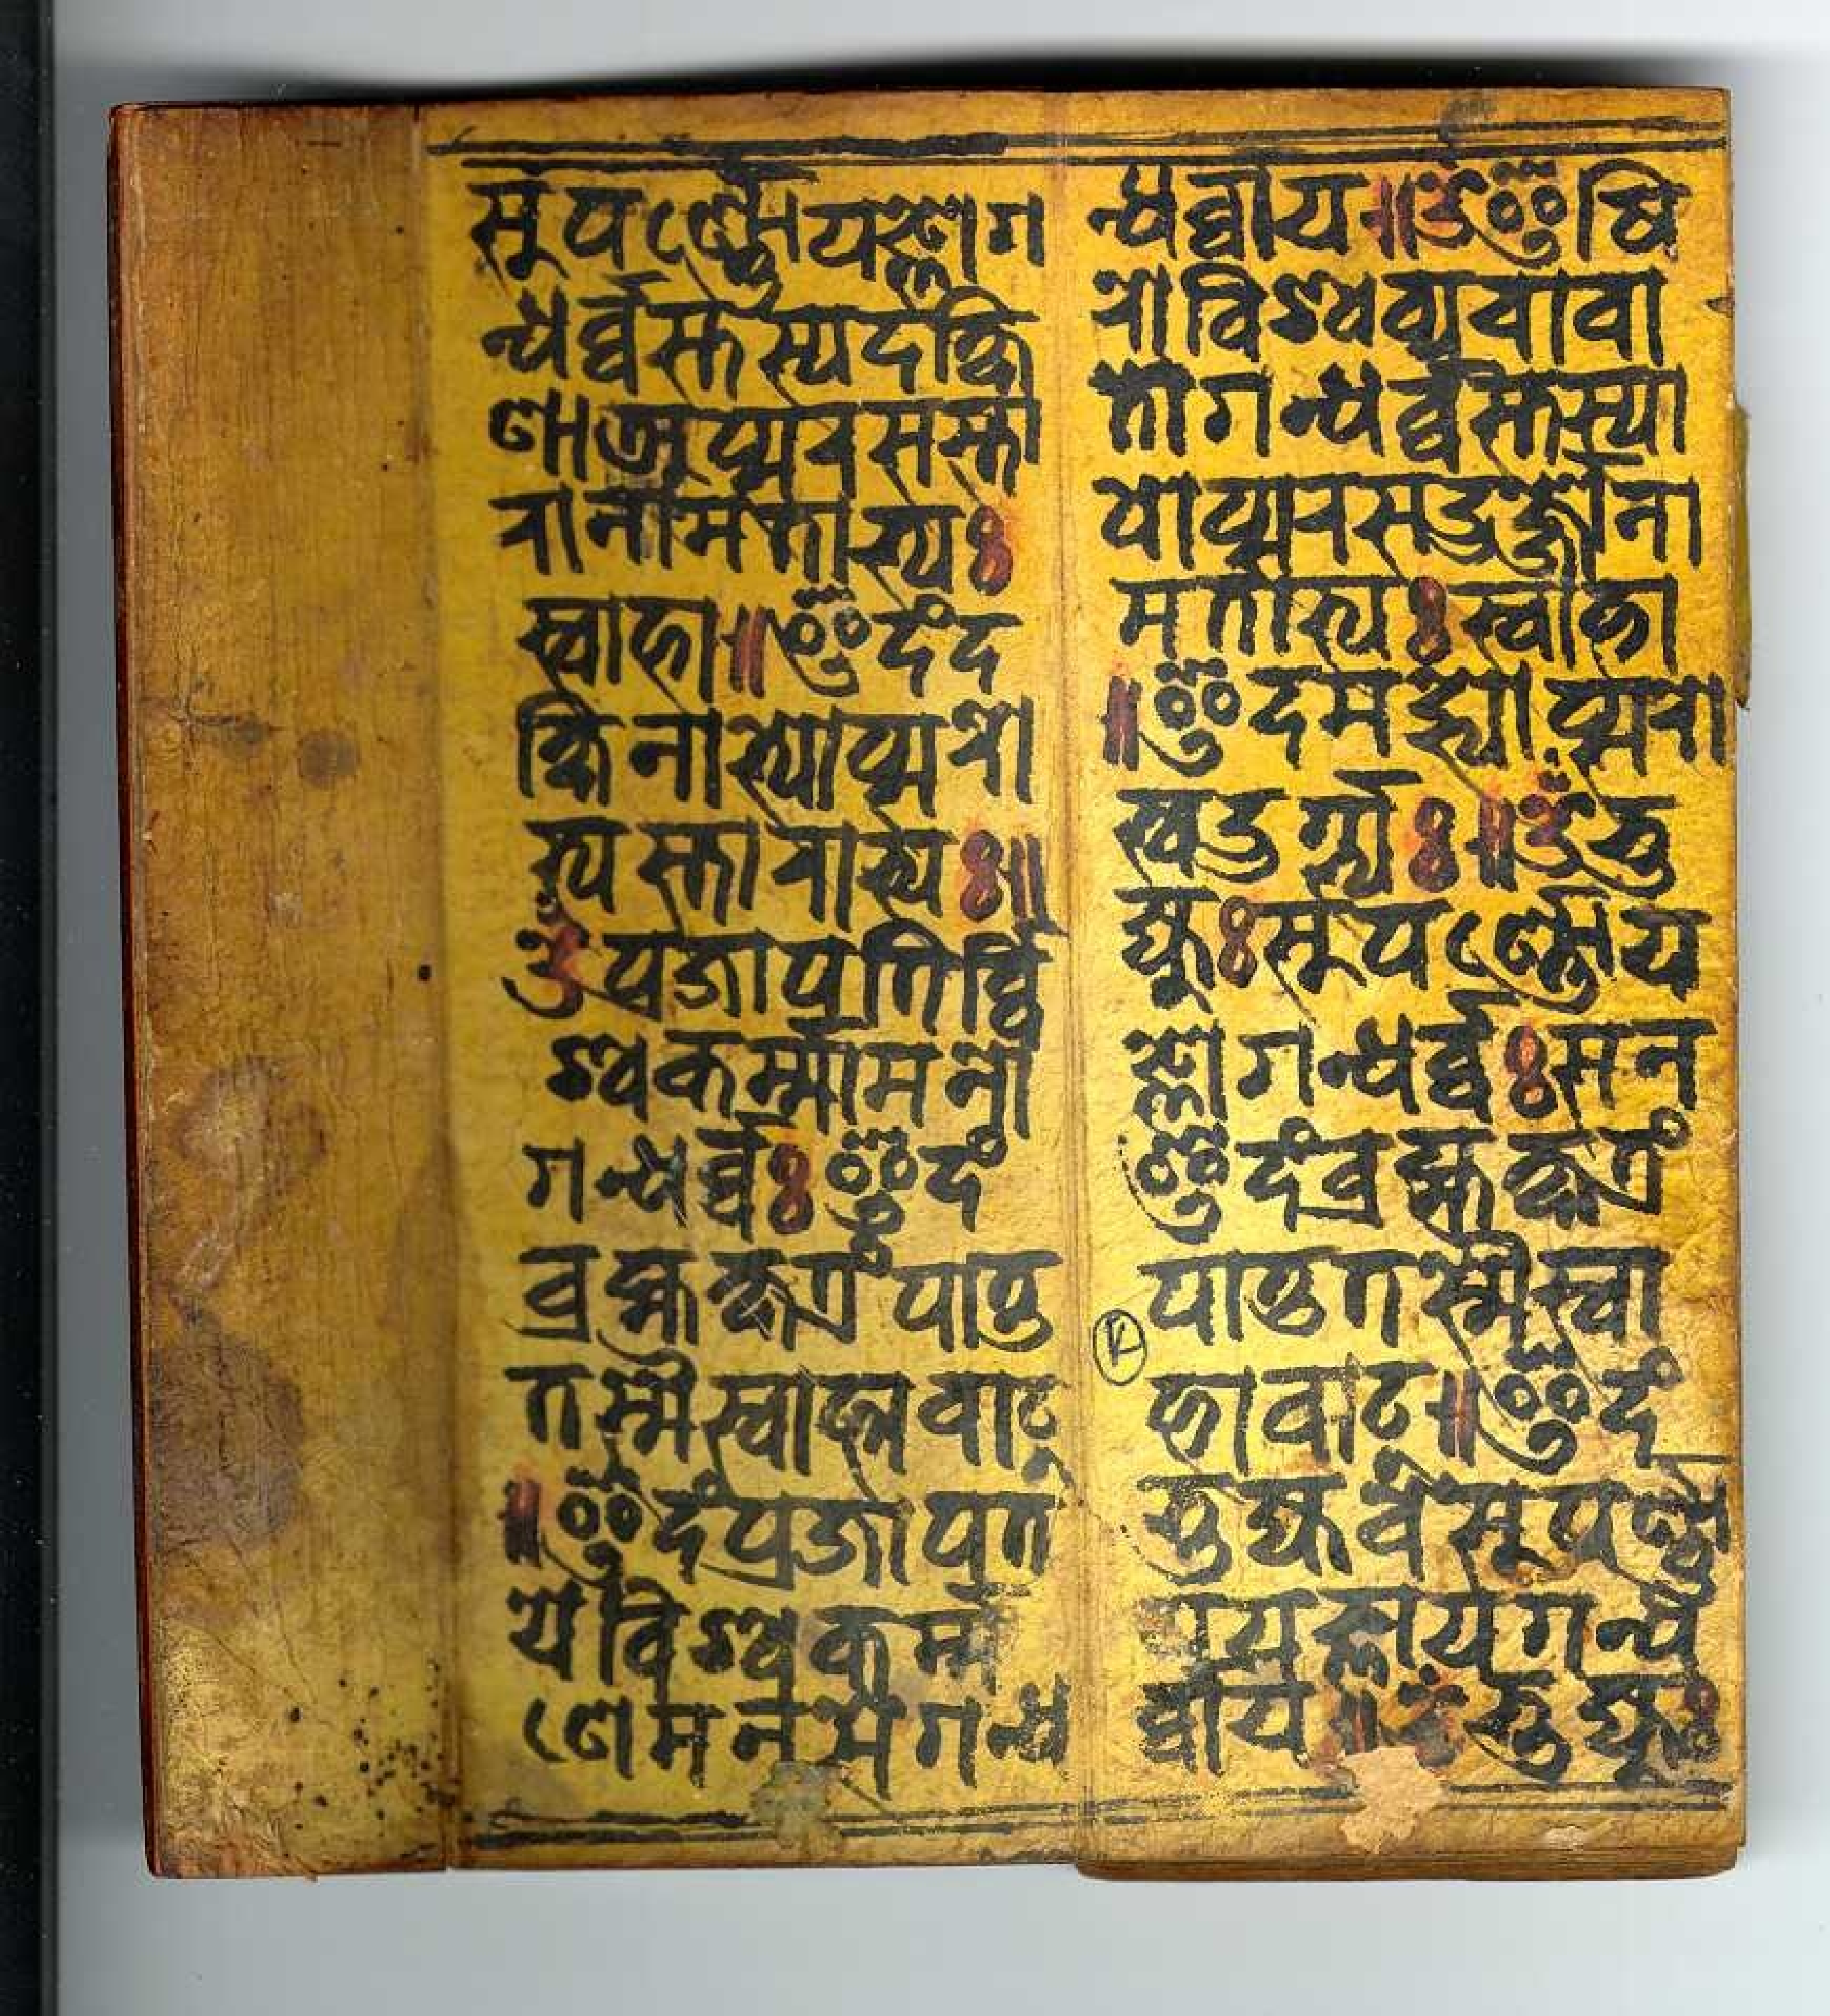 सुपर्ण्णो यज्ञो ग
न्धर्व्वस्तस्य दक्षि
णा अप्सरसस्ता
वा नाम ताभ्यः
स्वाहा॥ इदं द
क्षिनाभ्योप्सरो
भ्यस्तावाभ्यः॥
ॐ प्रजापतिर्व्वि
श्वकर्म्मा मनो
गन्धर्व्वः इदं
ब्रह्म क्षत्रं पातु
तस्मै स्वाहा वाट्
॥ इदं प्रजापत
ये विश्वकर्म्म
णे मनसे गन्ध
न्धर्व्वाय॥ ॐ इषि
रो विश्वव्यचा वा
तो गन्धर्व्वस्तस्या
पो अप्सरस उर्ज्जो ना
म ताभ्यः स्वाहा
॥ इदमद्भ्योप्सरो
भ्य उर्ग्भ्यः॥ ॐ भु
ज्युः सुपर्ण्णो य
ज्ञो गन्धर्व्वः स न
इदं ब्रह्म क्षत्रं
पातु तस्मै स्वा
हा वाट॥ इदं
भुज्यवे सुपर्ण्णा
य यज्ञाय गन्ध
र्व्वाय॥ ॐ भुज्युः